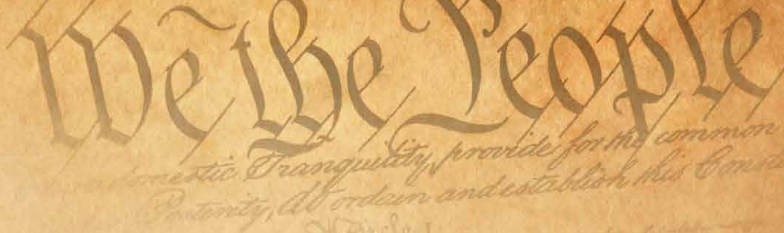 We the People
domestic Tranquility, provide for the common
Posterity, do ordain and establish this